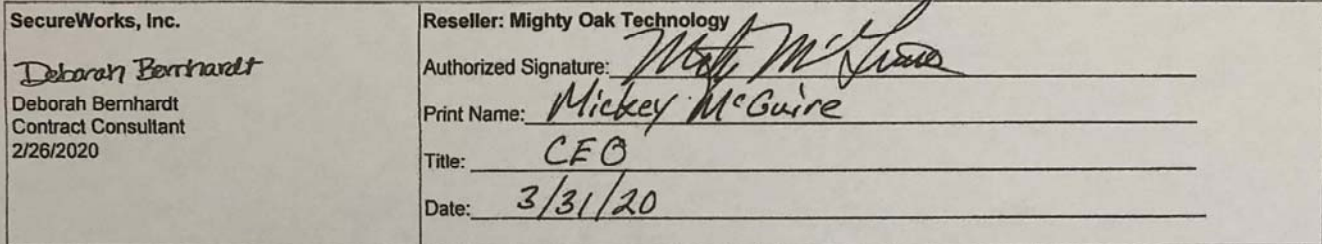 SecureWorks, Inc.
Deborah Bernhardt
Deborah Bernhardt
Contract Consultant
2/26/2020
Reseller: Mighty Oak Technology
Authorized Signature:
Print Name: Mickey McGuire
Title: CEO
Date: 3/31/20